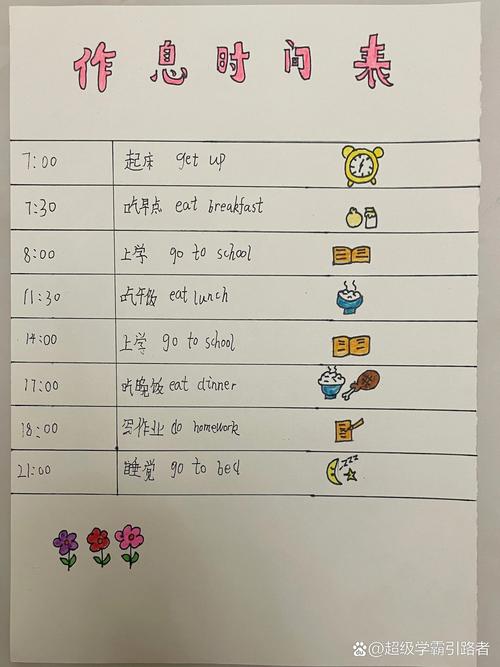 作息时间表
7:00 起床 get up
7:30 吃早点 eat breakfast
8:00 上学 go to school
11:30 吃午饭 eat lunch
14:00 上学 go to school
17:00 吃晚饭 eat dinner
18:00 写作业 do homework
21:00 睡觉 go to bed zzz
@超级学霸引路者